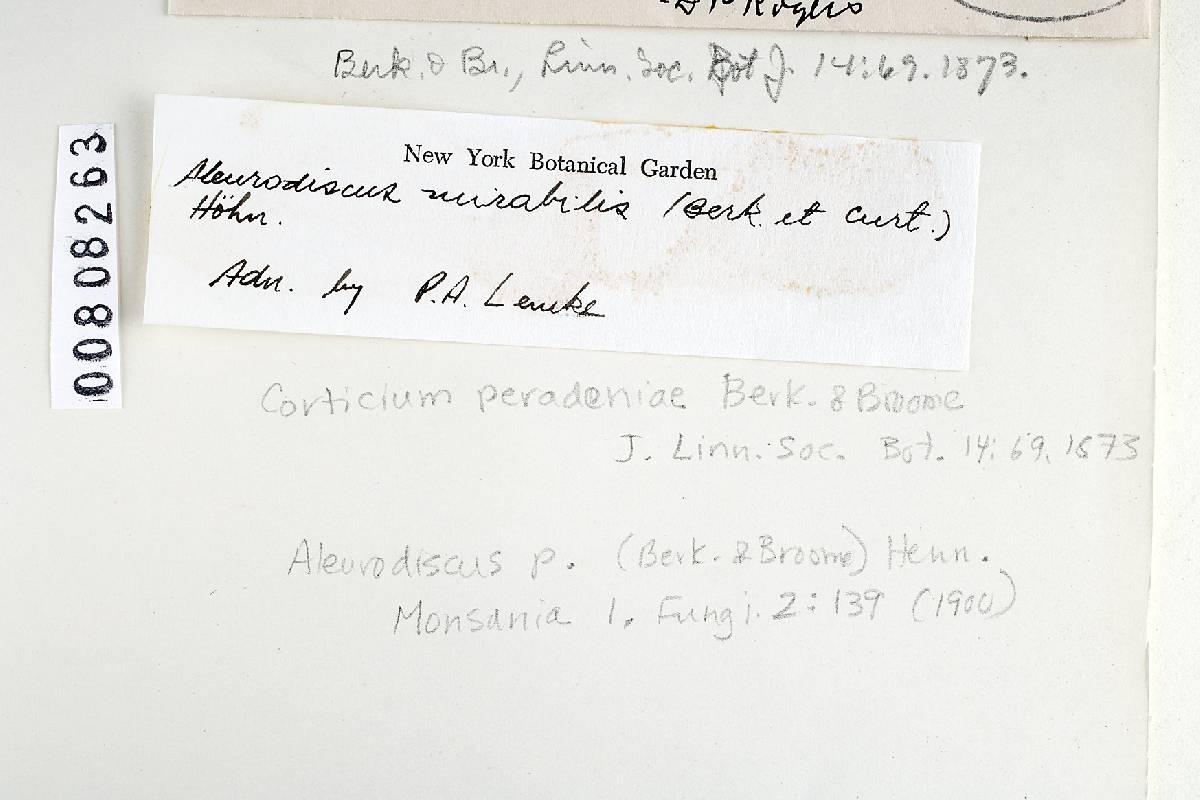 D P Rogers
Berk. & Br., Linn. Soc. Bot J. 14:69. 1873.
00808263
New York Botanical Garden
Aleurodiscus mirabilis (Berk. et Curt.)
Höhn.
Adn. by P.A. Lemke
Corticium peradeniae Berk. & Broome
J. Linn. Soc. Bot. 14: 69. 1873
Aleurodiscus p. (Berk. & Broome) Henn.
Monsunia 1. Fungi. 2: 139 (1900)